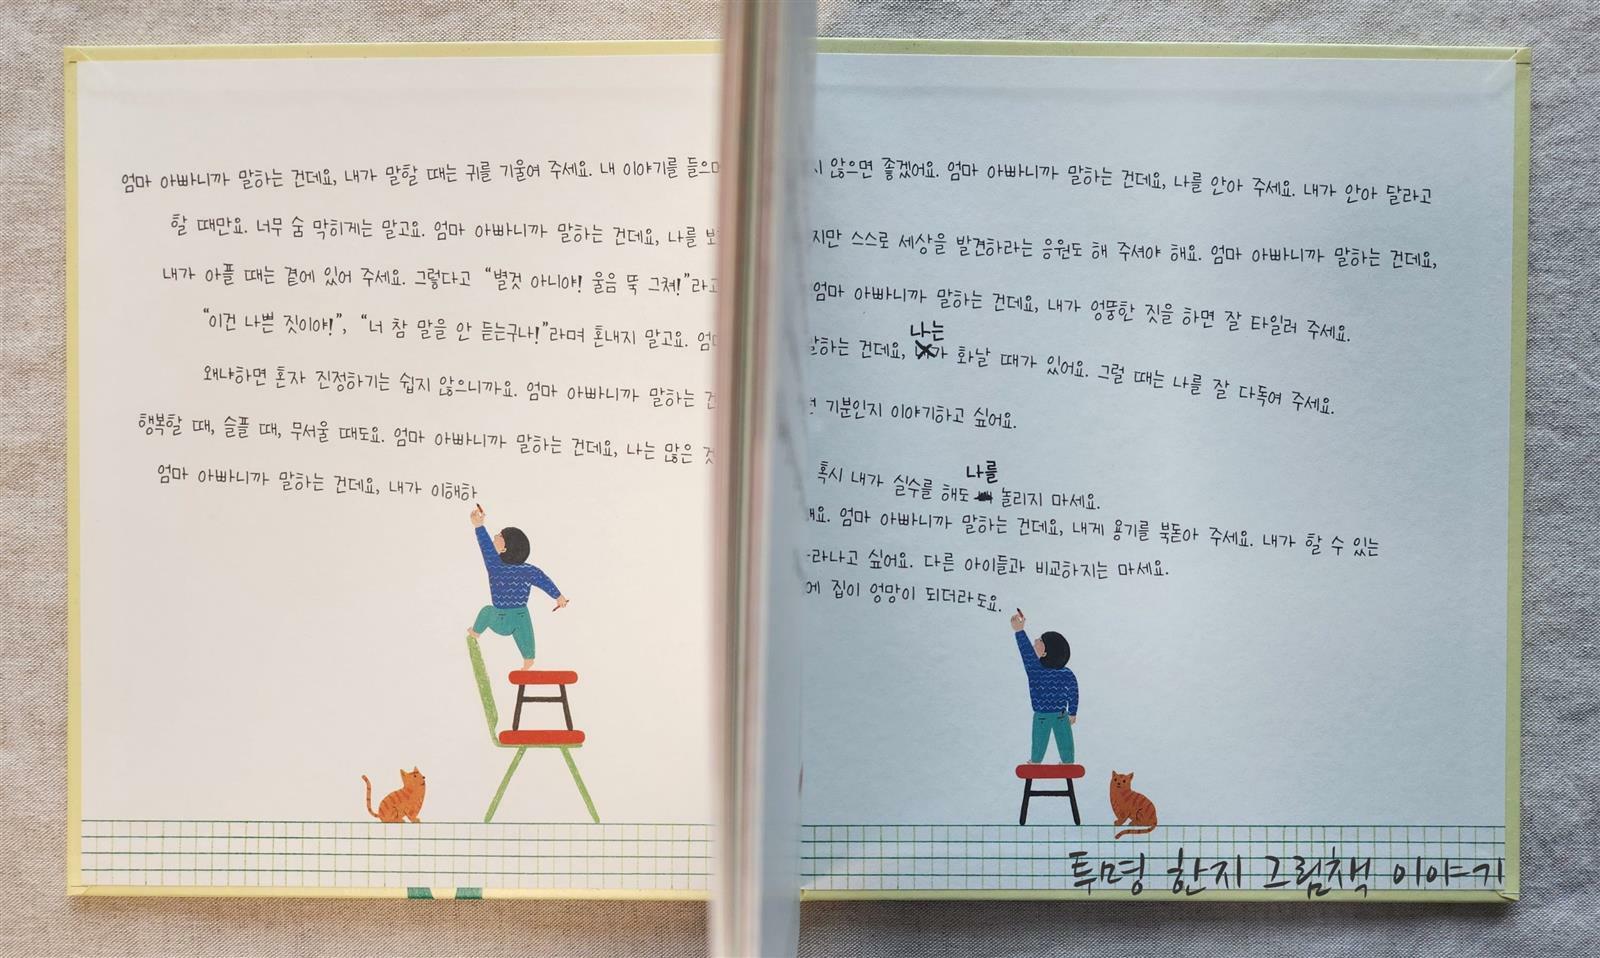 엄마 아빠니까 말하는 건데요, 내가 말할 때는 귀를 기울여 주세요. 내 이야기를 들으며
할 때만요. 너무 숨 막히게는 말고요. 엄마 아빠니까 말하는 건데요, 나를
내가 아플 때는 곁에 있어 주세요. 그렇다고 “별것 아니야! 울음 뚝 그쳐!”라고
“이건 나쁜 짓이야!”, “너 참 말을 안 듣는구나!”라며 혼내지 말고요.
왜냐하면 혼자 진정하기는 쉽지 않으니까요. 엄마 아빠니까 말하는
행복할 때, 슬플 때, 무서울 때도요. 엄마 아빠니까 말하는 건데요, 나는 많은
엄마 아빠니까 말하는 건데요, 내가 이해하
않으면 좋겠어요. 엄마 아빠니까 말하는 건데요, 나를 안아 주세요. 내가 안아 달라고
지만 스스로 세상을 발견하라는 응원도 해 주셔야 해요. 엄마 아빠니까 말하는 건데요,
엄마 아빠니까 말하는 건데요, 내가 엉뚱한 짓을 하면 잘 타일러 주세요.
나는
말하는 건데요, 화날 때가 있어요. 그럴 때는 나를 잘 다독여 주세요.
기분인지 이야기하고 싶어요.
나를
혹시 내가 실수를 해도 놀리지 마세요.
해요. 엄마 아빠니까 말하는 건데요, 내게 용기를 북돋아 주세요. 내가 할 수 있는
라나고 싶어요. 다른 아이들과 비교하지는 마세요.
에 집이 엉망이 되더라도요.
투명 한지 그림책 이야기